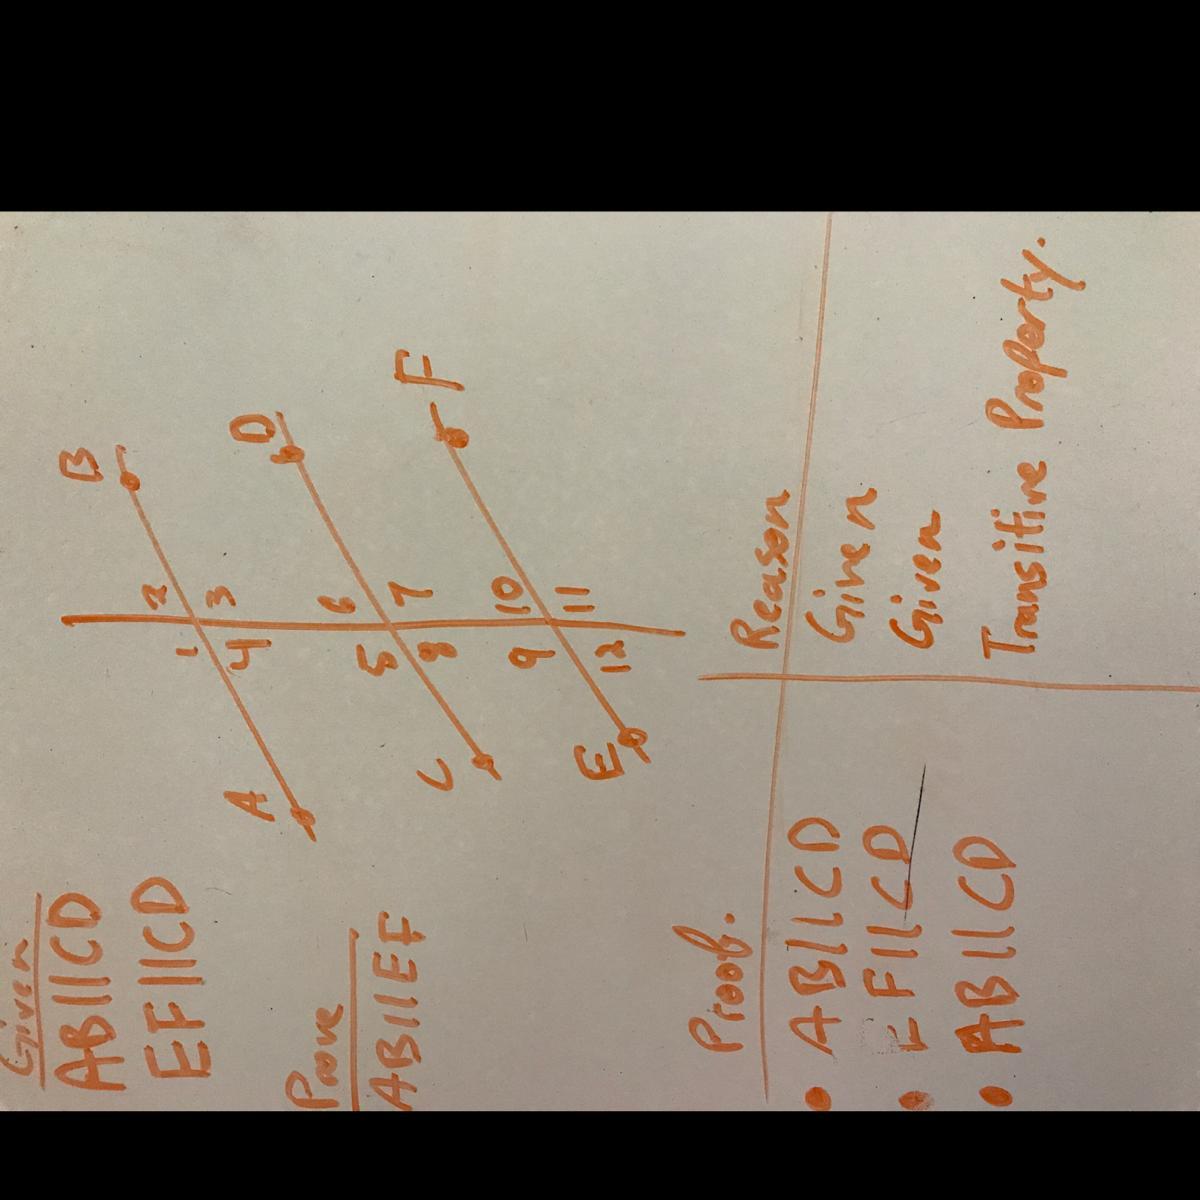 Given
AB||CD
EF||CD
Prove
AB||EF
B
D
F
2
3
6
7
10
11
1
4
5
8
9
12
A
C
E
Proof. Reason
• AB||CD Given
• EF||CD Given
• AB||CD Transitive Property.